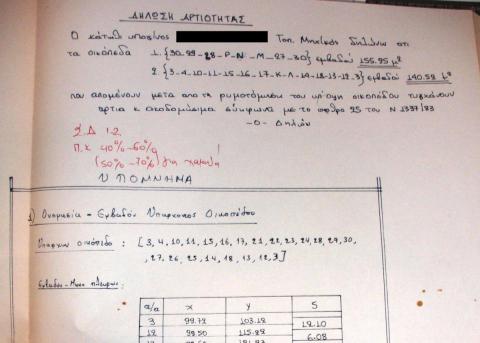 ΔΗΛΩΣΗ ΑΡΤΙΟΤΗΤΑΣ
Ο κάτωθι υπογ/νος Τοπ. Μηχ/κός δηλώνω οτι
τα οικόπεδα 1. {30-29-28-P-N-M-27-30} εμβαδού 155.95 μ²
2. {3-4-10-11-15-16-17-K-Λ-14-18-13-12-3} εμβαδού 140.52 μ²
που απομένουν μετά από τη ρυμοτόμηση του υπ'οψη οικοπέδου τυγχάνουν
άρτια κ οικοδομήσιμα σύμφωνα με το άρθρο 25 του Ν 1337/83
-Ο- Δηλών
Σ.Δ 1.2
Π.Κ 40%-60%
(50%-70%) για
ΥΠΟΜΝΗΜΑ
1) Ονομασία - Εμβαδόν Υπάρχοντος Οικοπέδου
Υπάρχον οικόπεδο : [3, 4, 10, 11, 15, 16, 17, 21, 22, 23, 24, 28, 29, 30,
, 27, 26, 25, 14, 18, 13, 12, 3]
Εμβαδόν - Μήκη πλευρών:
α/α x y S
3 99.72 103.12
12.10
12 98.50 115.22
6.08